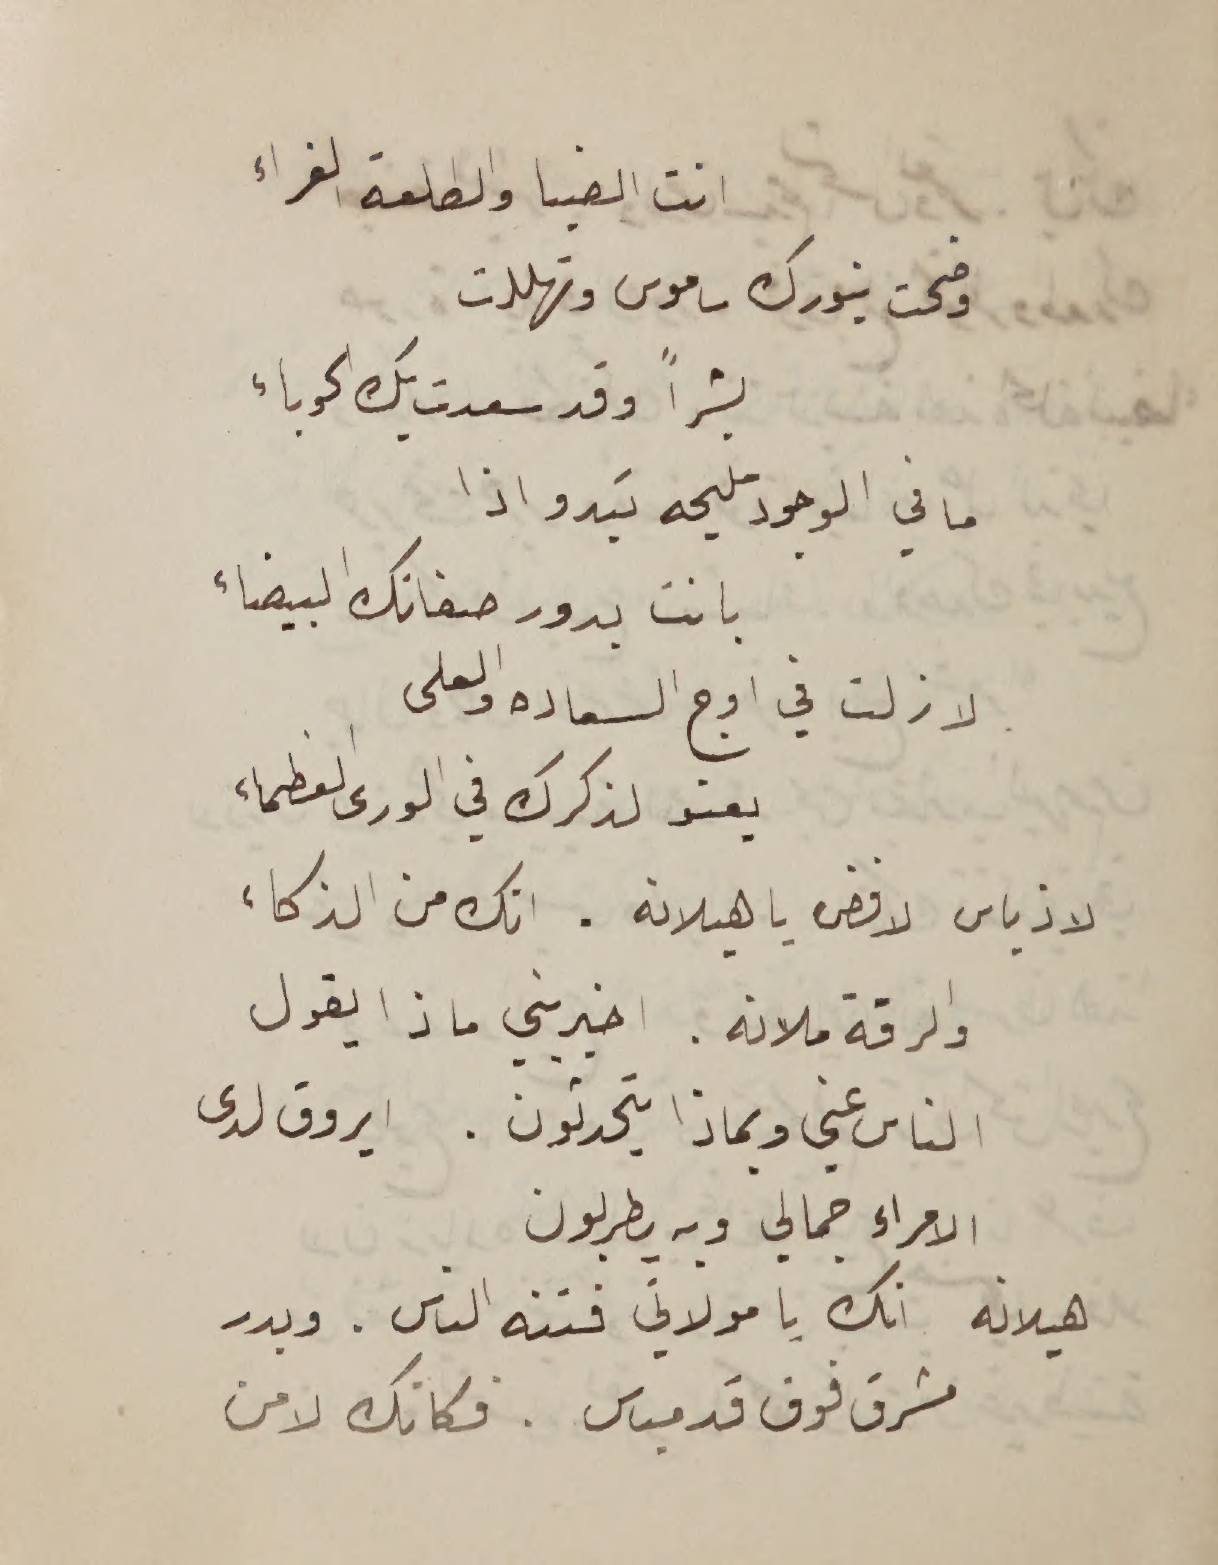 انت الضيا والطلعة الغراء
وضحت بنورك ساموس وتهللت
بشراً وقد سعدت بك الحوباء
ما في الوجود مليحه تبدو اذا
بانت بدور صفاتك البيضاء
لازلت في اوج السعاده والعلى
يعنو لذكرك في الورى العظماء
لاذياس لا فض يا هيلانه . انك من الذكاء
والرقة ملانه . اخبريني ماذا يقول
الناس عني وبماذا يتحدثون . ايروق لدى
الامراء جمالي وبه يطربون
هيلانه انك يا مولاتي فتنه الناس . وبدر
مشرق فوق قد مياس . فكانك لا من